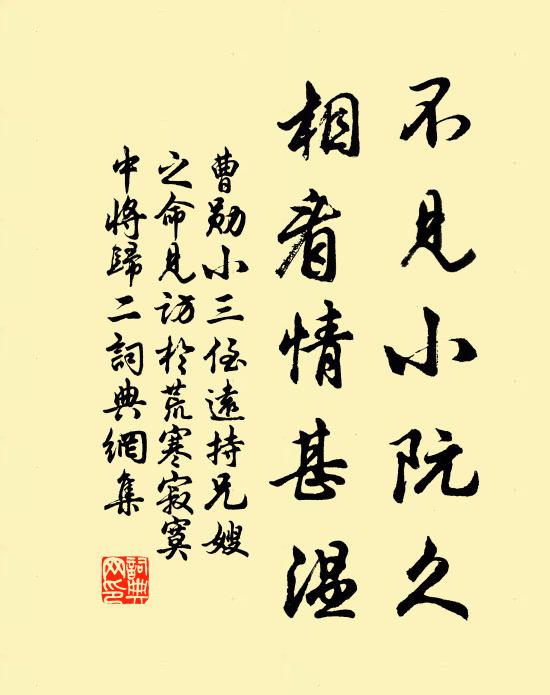 不見小阮久
相看情甚温
曹勛小三侄遠持兄嫂
之命見訪於荒寒寂寞
中將歸二詞典網集
詞典
网印